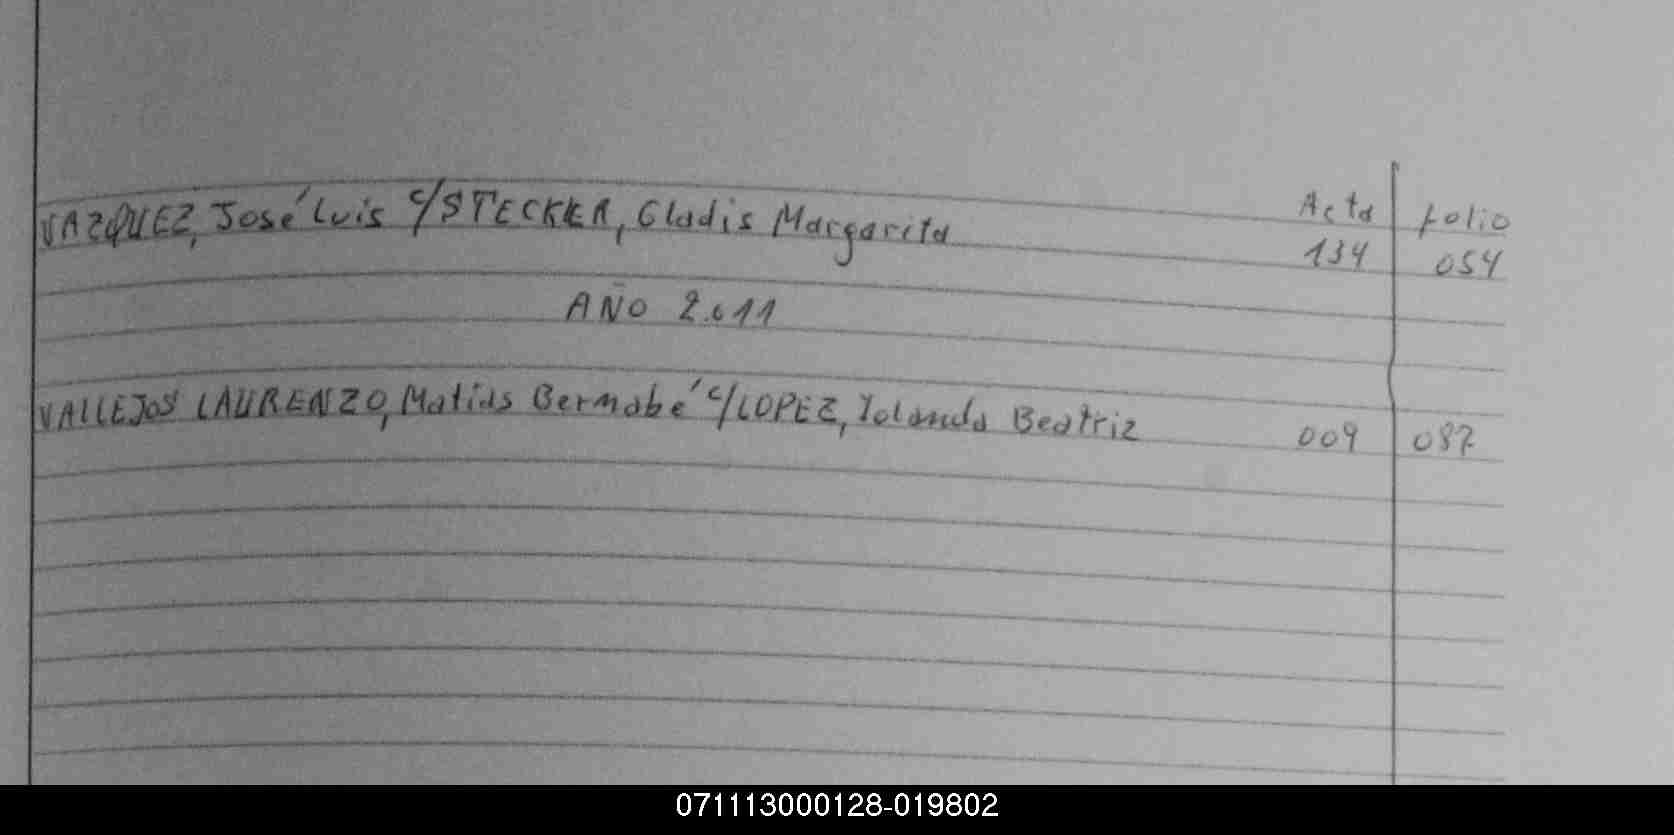 Acta folio
VAZQUEZ, José Luis c/STECKER, Gladis Margarita 134 054
AÑO 2.011
VALLEJOS LAURENZO, Matias Bernabé c/LOPEZ, Yolanda Beatriz 009 087
071113000128-019802